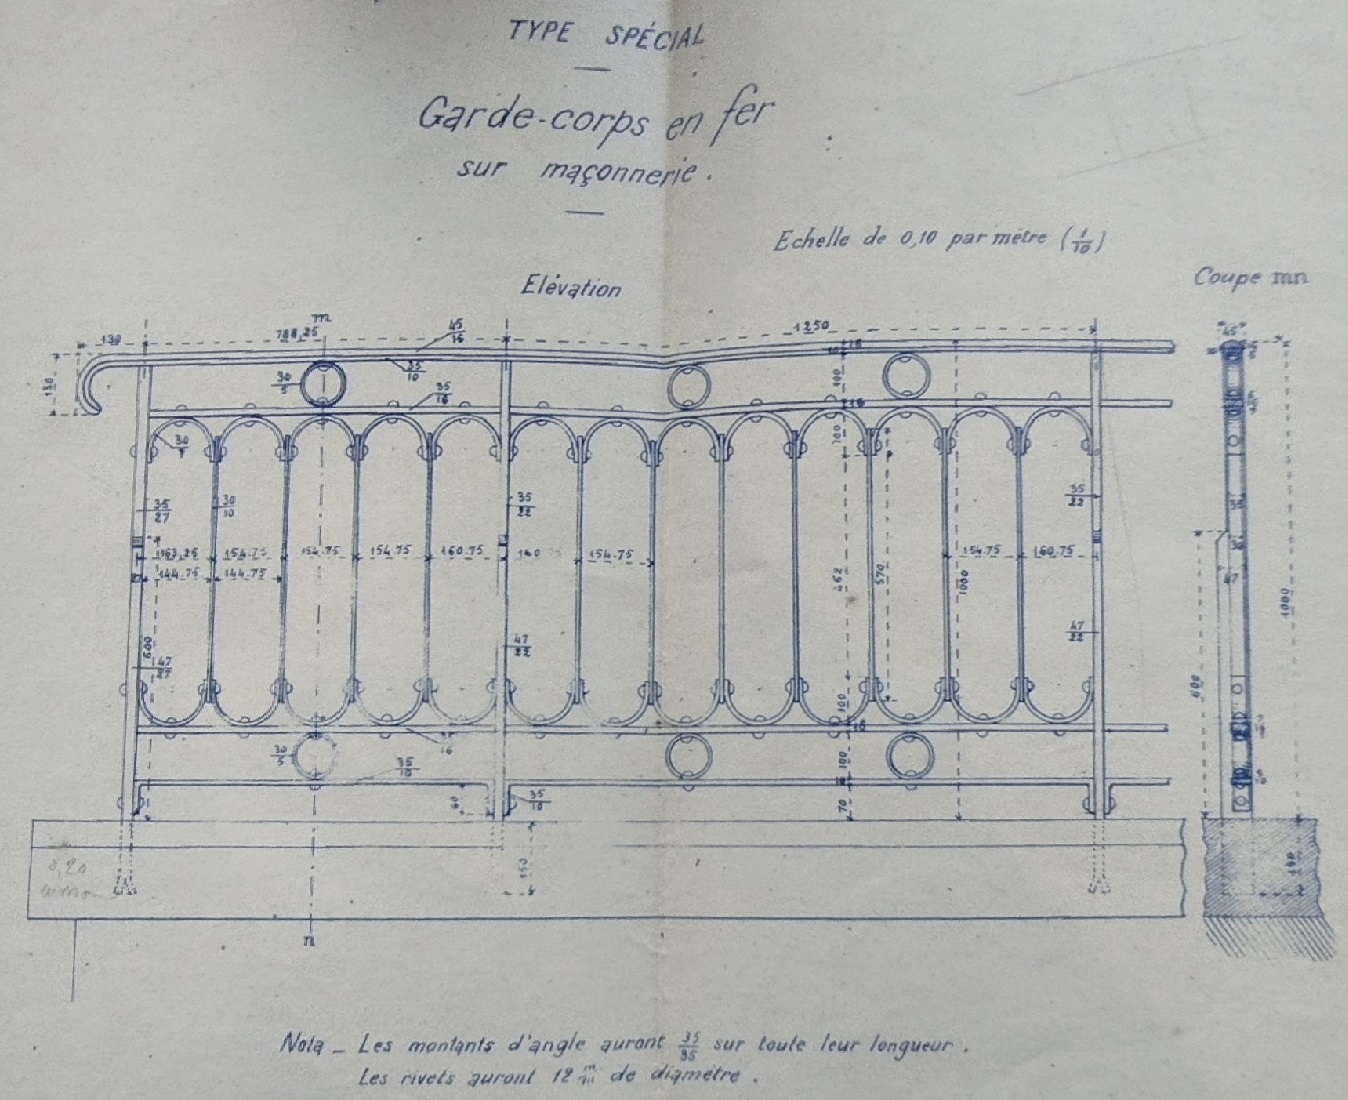 TYPE SPÉCIAL
Garde-corps en fer
sur maçonnerie.
Echelle de 0,10 par mètre (1/10)
Coupe mn
Elévation
m
130
788,25
45/16
1250
45
35/10
30/5
35/16
100
30
35/27
30/10
35/22
35/22
154.75
154.75
154.75
160.75
160
154.75
154.75
160.75
144.75
144.75
462
570
1000
47
1000
600
47/27
47/22
47/22
600
100
16
30/5
35/10
100
35/10
70
n
Nota _ Les montants d'angle auront 35/35 sur toute leur longueur.
Les rivets auront 12 m/m de diamètre.